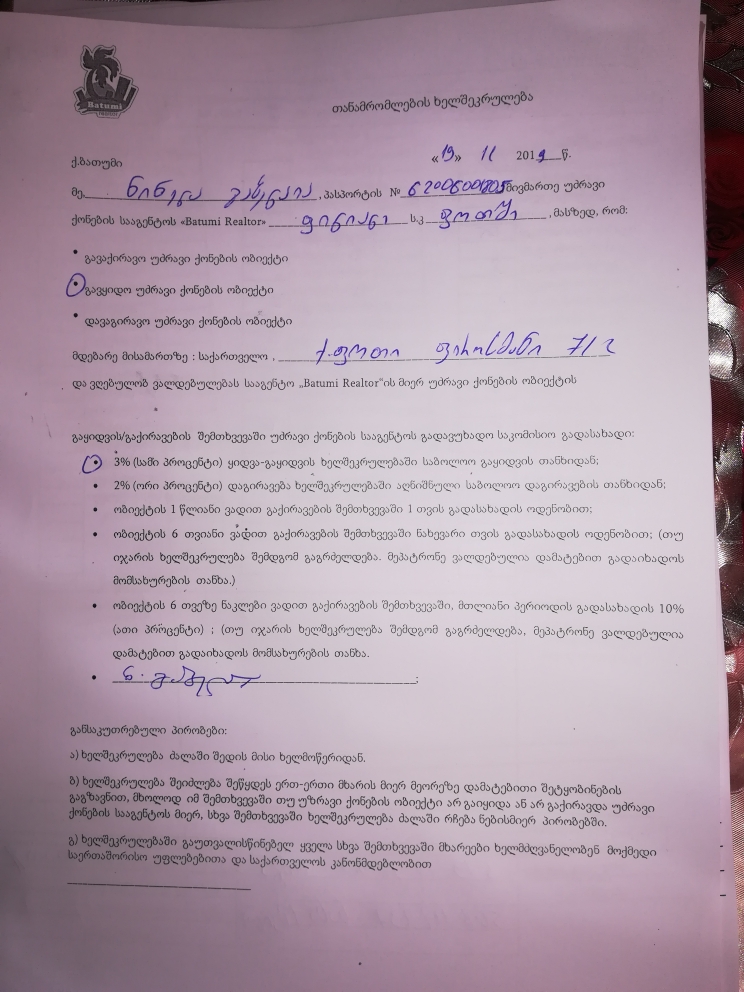 Batumi
თანამრომლების ხელშეკრულება
ქ.ბათუმი «19» 11 2019 წ.
მე, ნინელი , პასპორტის № მივმართე უძრავი
ქონების სააგენტოს «Batumi Realtor» ს.კ ფოთში , მასზედ, რომ:
• გავაქირავო უძრავი ქონების ობიექტი
• გავყიდო უძრავი ქონების ობიექტი
• დავაგირავო უძრავი ქონების ობიექტი
მდებარე მისამართზე : საქართველო , ქ.ფოთი ფიროსმანი 7/2
და ვღებულობ ვალდებულებას სააგენტო „Batumi Realtor“ის მიერ უძრავი ქონების ობიექტის
გაყიდვის/გაქირავების შემთხვევაში უძრავი ქონების სააგენტოს გადავუხადო საკომისიო გადასახადი:
• 3% (სამი პროცენტი) ყიდვა-გაყიდვის ხელშეკრულებაში საბოლოო გაყიდვის თანხიდან;
• 2% (ორი პროცენტი) დაგირავება ხელშეკრულებაში აღნიშნული საბოლოო დაგირავების თანხიდან;
• ობიექტის 1 წლიანი ვადით გაქირავების შემთხვევაში 1 თვის გადასახადის ოდენობით;
• ობიექტის 6 თვიანი ვადით გაქირავების შემთხვევაში ნახევარი თვის გადასახადის ოდენობით; (თუ
იჯარის ხელშეკრულება შემდგომ გაგრძელდება. მეპატრონე ვალდებულია დამატებით გადაიხადოს
მომსახურების თანხა.)
• ობიექტის 6 თვეზე ნაკლები ვადით გაქირავების შემთხვევაში, მთლიანი პერიოდის გადასახადის 10%
(ათი პროცენტი) ; (თუ იჯარის ხელშეკრულება შემდგომ გაგრძელდება, მეპატრონე ვალდებულია
დამატებით გადაიხადოს მომსახურების თანხა.
•
განსაკუთრებული პირობები:
ა) ხელშეკრულება ძალაში შედის მისი ხელმოწერიდან.
ბ) ხელშეკრულება შეიძლება შეწყდეს ერთ-ერთი მხარის მიერ მეორეზე დამატებითი შეტყობინების
გაგზავნით, მხოლოდ იმ შემთხვევაში თუ უზრავი ქონების ობიექტი არ გაიყიდა ან არ გაქირავდა უძრავი
ქონების სააგენტოს მიერ, სხვა შემთხვევაში ხელშეკრულება ძალაში რჩება ნებისმიერ პირობებში.
გ) ხელშეკრულებაში გაუთვალისწინებელ ყველა სხვა შემთხვევაში მხარეები ხელმძღვანელობენ მოქმედი
საერთაშორისო უფლებებითა და საქართველოს კანონმდებლობით